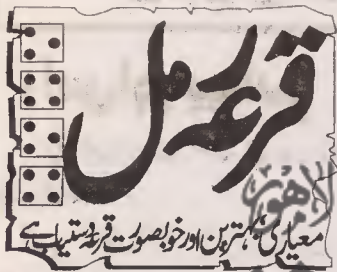 قرعہ رمل
لاہور
معیاری بہترین اور خوبصورت قرعہ دستیاب ہے